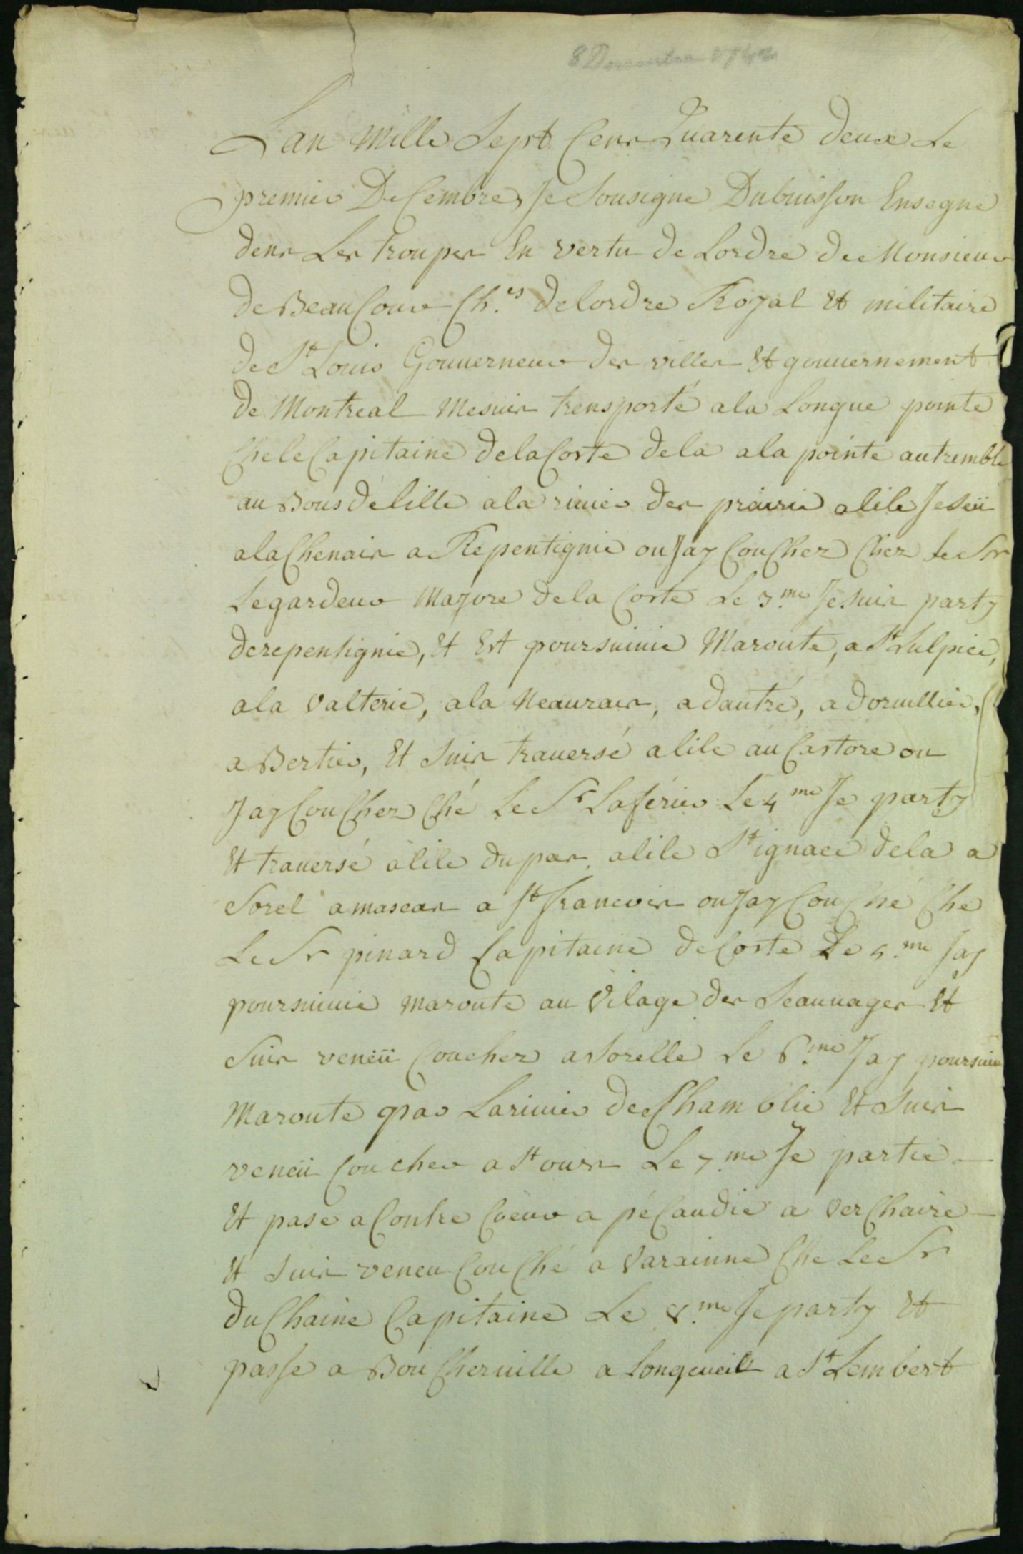 8 Decembre 1742
Lan Mille Sept Cens Quarente deux Le
premier DeCembre, Je Sousigne Dubuisson Ensegne
dens Les troupes En vertu de Lordre de Monsieur
de BeauCour Ch.er delordre Royal Et militaire
de St Louis Gouverneur des villes Et gouuernement
de Montreal mesuis trensporté ala Longue pointe
Che le Capitaine delaCoste dela ala pointe autremble
au Bous de lille ala riuier des prairie a lile Jeseü
alaChenais a Repentignie ou Jay CouCher Chez le Sr
Legardeur Majore dela Coste Le 3.me Je suis party
derepentignie, Et Est poursuiuie Maroute, a St Sulpice,
ala Valterie, ala Neaurais, a dautré, a doruillier,
a Bertier, Et suis trauersé a lile au Castore ou
Jay CouCher Ché Le Sr Laferier Le 4 me Je party
Et trauersé à lile dupas. a lile St ignace dela a
Sorel a mascas a St francois ou Jay CouChé Che
Le Sr pinard Capitaine deCoste Le 5.me Jay
poursuiuie maroute au Vilage des Seauuages Et
Suis veneü Coucher a Sorelle Le 6.me Jay poursuiuie
Maroute par Lariuier deChamblie Et Suis
veneü Coucher a St ours Le 7.me Je partie
Et pase a Contre Coeur a péCaudie a VerChaire
Et suis veneu CouChé a Varainne Che Le Sr
duChaine Capitaine Le 8.me Je party Et
passe a BouCheruille a Longeueill a St Lembert